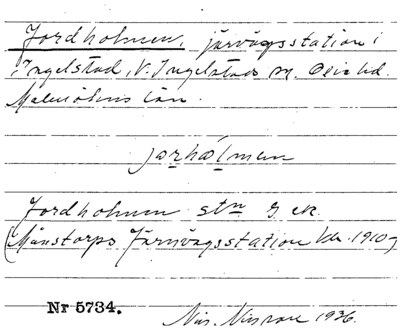 Jordholmen, järvägsstation i
Ingelstad, V. Ingelstads sn. Oxie hd.
Malmöhus län.
jorhólmen
Jordholmen stn g. ek.
(Månstorps Järnvägsstation 1910-
Nr 5734.
1936.